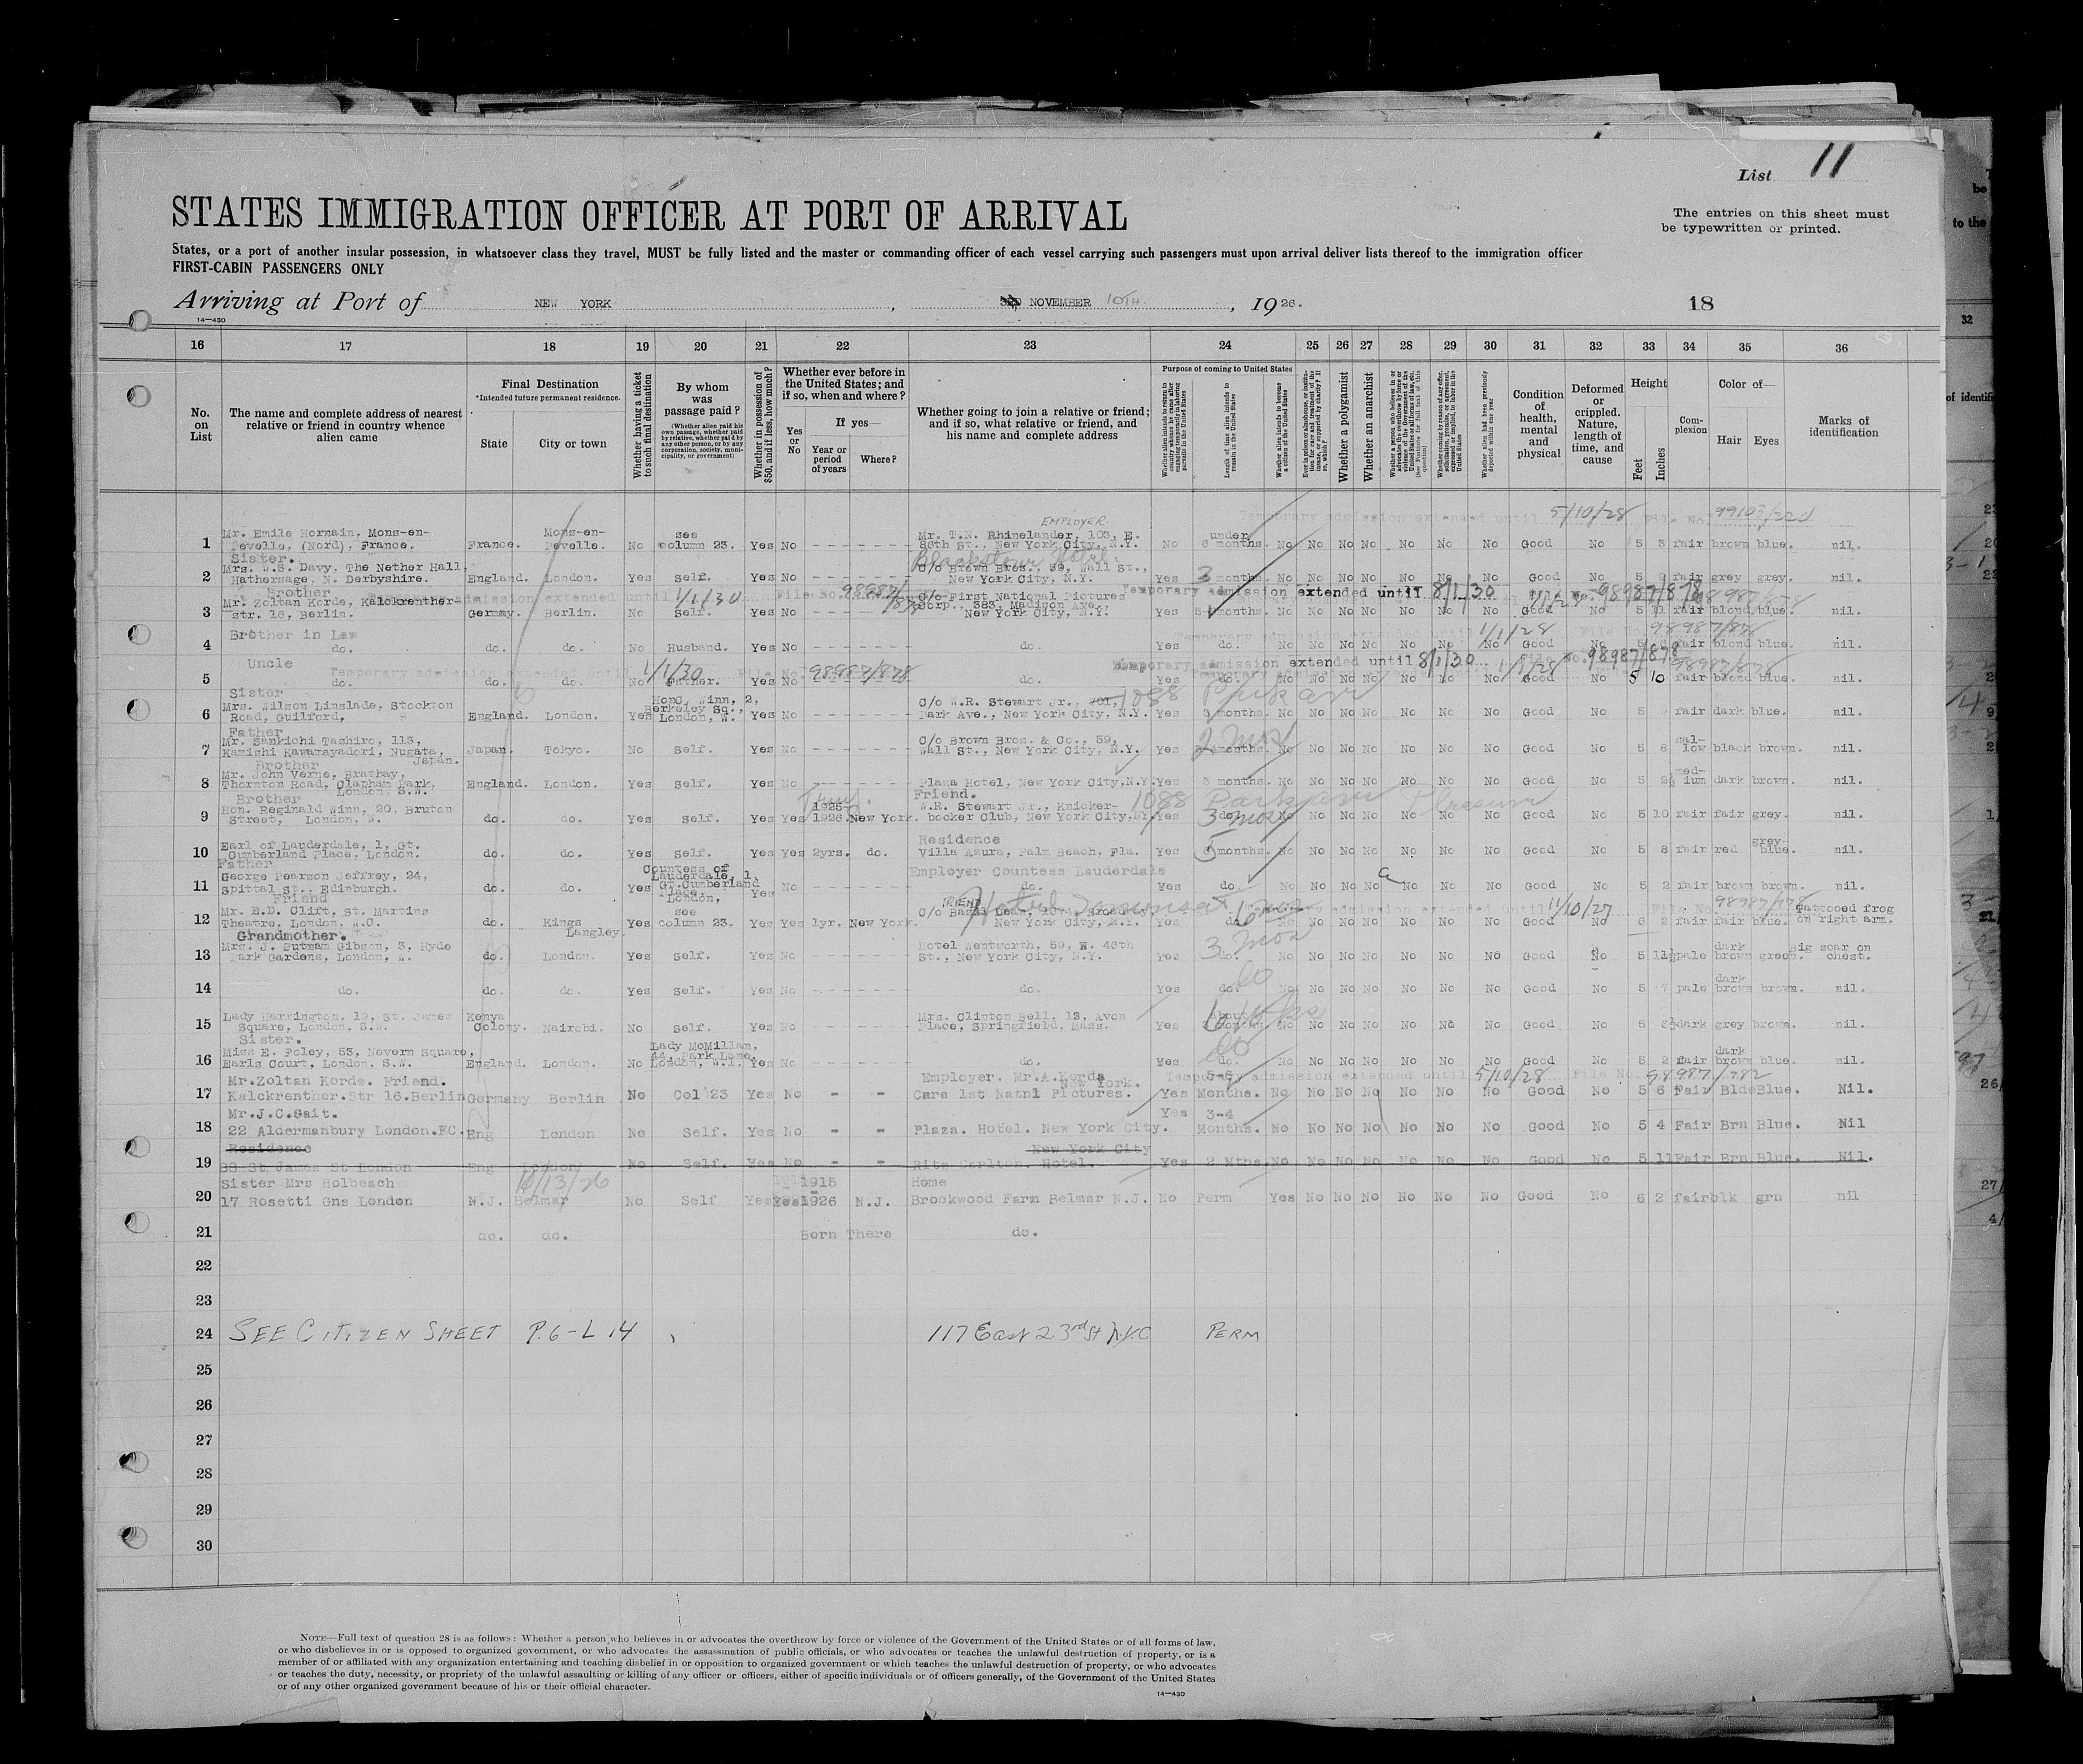 List 11
STATES IMMIGRATION OFFICER AT PORT OF ARRIVAL
The entries on this sheet must
be typewritten or printed.
States, or a port of another insular possession, in whatsoever class they travel, MUST be fully listed and the master or commanding officer of each vessel carrying such passengers must upon arrival deliver lists thereof to the immigration officer
FIRST-CABIN PASSENGERS ONLY
Arriving at Port of NEW YORK, NOVEMBER 10TH, 1926. 18
14—430
16 17 18 19 20 21 22 23 24 25 26 27 28 29 30 31 32 33 34 35 36
No. on List
The name and complete address of nearest relative or friend in country whence alien came
Final Destination
*Intended future permanent residence.
State
City or town
Whether having a ticket to such final destination
By whom was passage paid?
(Whether alien paid his own passage, whether paid by relative, whether paid by any other person, or by any corporation, society, municipality, or government)
Whether in possession of $50, and if less, how much?
Whether ever before in the United States; and if so, when and where?
Yes or No
If yes—
Year or period of years
Where?
Whether going to join a relative or friend; and if so, what relative or friend, and his name and complete address
Purpose of coming to United States
Length of time alien intends to remain in the United States
Whether alien intends to become a citizen of the United States
Whether a polygamist
Whether an anarchist
Condition of health, mental and physical
Deformed or crippled. Nature, length of time, and cause
Height
Feet
Inches
Complexion
Color of—
Hair
Eyes
Marks of identification
Temporary admission extended until 5/10/28 File No. 99103/220
1 Mr. Emile Hornain, Mons-en-Pevelle, (Nord), France. France. Mons-en-Pevelle. No see column 23. Yes No EMPLOYER Mr. T.N. Rhinelander, 103, E. 86th St., New York City, N.Y. No under 6 months. No No No No No No No Good No 5 3 fair brown blue. nil.
2 Sister. Mrs. W.S. Davy, The Nether Hall, Hathersage, N. Derbyshire. England. London. Yes Self. Yes No Blackstone Hotel C/o Brown Bros., 59, Wall St., New York City, N.Y. Yes 3 months. No No No No No No No Good No 5 fair grey grey. nil.
Temporary admission extended until 1/1/30 File No. 98987/878 Temporary admission extended until 8/1/30 No. 98987/878
3 Brother Mr. Zoltan Korde, Kalckrenther-str. 16, Berlin. Germany. Berlin. No Self. Yes No C/o First National Pictures Corp., 383, Madison Ave., New York City, N.Y. Yes months. No No No No No No No Good No 5 11 fair blond blue. nil.
Temporary admission extended until 1/1/28 File No. 98987/878
4 Brother in Law do. do. do. No Husband. Yes No do. Yes do. No No No No No No No Good No 5 fair blond blue. nil.
Temporary admission extended until 1/1/30 File No. 98987/878 Temporary admission extended until 8/1/30 No. 98987/878
5 Uncle do. do. do. No Father. Yes No do. Yes do. No No No No No No No Good No 5 10 fair blond blue. nil.
6 Sister Mrs. Wilson Linslade, Stockton Road, Guilford, England. London. Yes Hon. Winn, 2, Berkeley Sq., London, W. Yes No C/o W.R. Stewart Jr., 1088 Park Ave., New York City, N.Y. Yes months. No No No No No No No Good No 5 fair dark blue. nil.
7 Father Mr. Sankichi Tashiro, 113, Kamishi Kawamayadori, Nugata, Japan. Japan. Tokyo. No Self. Yes No C/o Brown Bros. & Co., 59, Wall St., New York City, N.Y. Yes 2 mos months. No No No No No No No Good No 5 8 sal-low black brown. nil.
8 Brother Mr. John Verne, Brathay, Thornton Road, Clapham Park, London, S.W. England. London. Yes Self. Yes No Plaza Hotel, New York City, N.Y. Yes months. No No No No No No No Good No 5 2½ med-ium dark brown. nil.
9 Brother Hon. Reginald Winn, 20, Bruton Street, London, W. do. do. Yes Self. Yes Yes 1925-1926. New York. Friend. W.R. Stewart Jr., Knicker-bocker Club, New York City, NY. 1088 Park ave Pleasure Yes 3 mos do. No No No No No No No Good No 5 10 fair fair grey. nil.
10 Earl of Lauderdale, 1, Gt. Cumberland Place, London. do. do. Yes Self. Yes Yes 2yrs. do. Residence Villa Azura, Palm Beach, Fla. Yes 5 months. No No No No No No No Good No 5 8 fair red grey-blue. nil.
11 Father George Pearson Jeffrey, 24, Spittal St., Edinburgh. do. do. Yes Countess of Lauderdale, 1, Gt. Cumberland Place, London, Yes No Employer Countess Lauderdale do. Yes do. No No No No No No No Good No 5 2 fair brown brown. nil.
Temporary admission extended until 11/10/27 File No. 98987/778
12 Friend Mr. E.D. Clift, St. Martins Theatre, London, W.C. do. Kings Langley. Yes see column 23. Yes Yes 1yr. New York. FRIEND C/o Basil Dean, Broadway, New York City, N.Y. Yes 6 mos do. No No No No No No No Good No 6 2 fair fair blue. Tattooed frog on right arm.
13 Grandmother. Mrs. J. Putnam Gibson, 3, Hyde Park Gardens, London, W. do. London. Yes Self. Yes No Hotel Wentworth, 59, W. 46th St., New York City, N.Y. Yes 3 mos do. No No No No No No No Good No 5 11½ pale dark brown green. Big scar on chest.
14 do. do. do. Yes Self. Yes No do. Yes do do. No No No No No No No Good No 5 7 pale dark brown brown. nil.
15 Lady Harrington, 19, St. James Square, London, S.W. Kenya Colony. Nairobi. No Self. Yes No Mrs. Clinton Bell, 13, Avon Place, Springfield, Mass. Yes wks No No No No No No No Good No 5 dark grey brown. nil.
16 Sister. Miss E. Foley, 53, Nevern Square, Earls Court, London, S.W. England. London. No Lady McMillan, 44, Park Lane, London, W.1. Yes No do. Yes do do. No No No No No No No Good No 5 2 fair dark brown blue. nil.
Temporary admission extended until 5/10/28 File No. 98987/782
17 Mr.Zoltan Korde. Friend. Kalckrenther.Str 16.Berlin Germany Berlin No Col 23 Yes No - - Employer. Mr.A.Korda New York. Care 1st Natnl Pictures. Yes 5-6 Months. No No No No No No No Good No 5 6 Fair Blde Blue. Nil.
18 Mr.J.C.Gait. 22 Aldermanbury London.EC. Eng London No Self. Yes No - - Plaza. Hotel. New York City. Yes 3-4 Months. No No No No No No No Good No 5 4 Fair Brn Blue. Nil
19 Residence 88 St James St London Eng London No Self. Yes No - - New York City Ritz Carlton. Hotel. Yes 2 Mths. No No No No No No No Good No 5 11 Fair Brn Blue. Nil.
20 Sister Mrs Holbeach 17 Rosetti Gns London N.J. Belmar No Self Yes Yes 1915 1926 N.J. Home Brookwood Farm Belmar N.J. No Perm Yes No No No No No No Good No 6 2 fair blk grn nil
21 do. do. Born There do.
22
23
24 SEE CITIZEN SHEET P.6-L 14 117 East 23rd St N.Y.C PERM
25
26
27
28
29
30
NOTE—Full text of question 28 is as follows: Whether a person who believes in or advocates the overthrow by force or violence of the Government of the United States or of all forms of law,
or who disbelieves in or is opposed to organized government, or who advocates the assassination of public officials, or who advocates or teaches the unlawful destruction of property, or is a
member of or affiliated with any organization entertaining and teaching disbelief in or opposition to organized government or which teaches the unlawful destruction of property, or who advocates
or teaches the duty, necessity, or propriety of the unlawful assaulting or killing of any officer or officers, either of specific individuals or of officers generally, of the Government of the United States
or of any other organized government because of his or their official character.
14—430